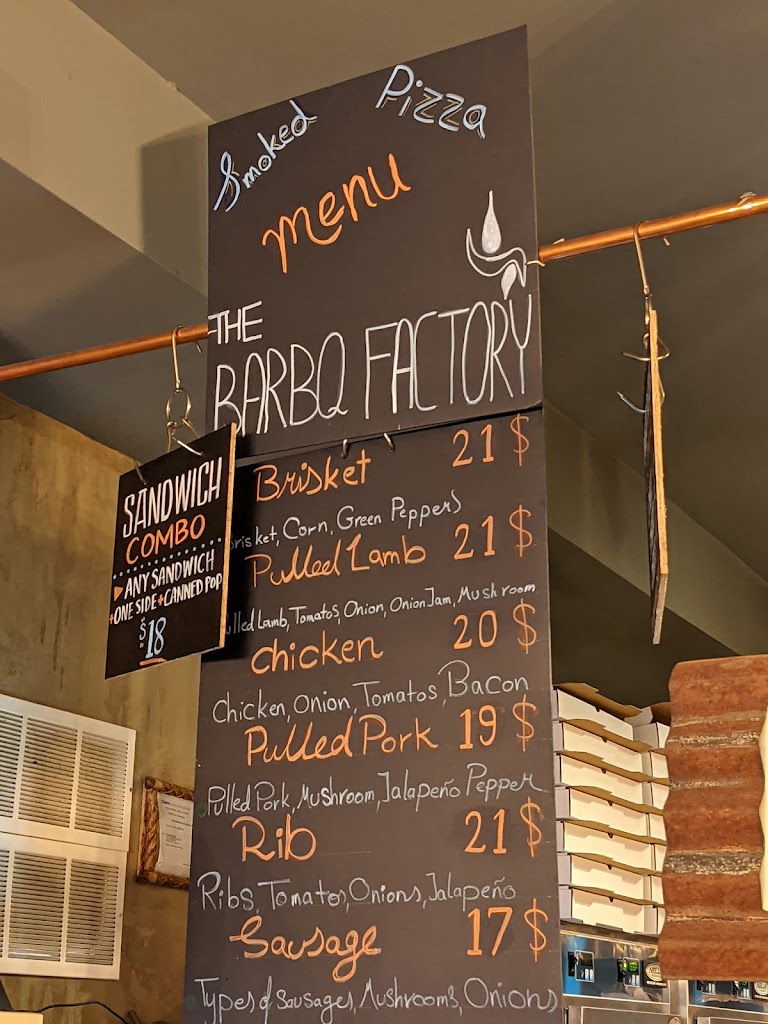 Smoked Pizza
menu
THE
BARBQ FACTORY
Brisket 21 $
Brisket, Corn, Green Peppers
Pulled Lamb 21 $
Pulled Lamb, Tomatos, Onion, Onion Jam, Mushroom
chicken 20 $
Chicken, Onion, Tomatos, Bacon
Pulled Pork 19 $
Pulled Pork, Mushroom, Jalapeño Pepper
Rib 21 $
Ribs, Tomatos, Onions, Jalapeño
Sausage 17 $
Types of Sausages, Mushrooms, Onions
SANDWICH
COMBO
ANY SANDWICH
+ONE SIDE+CANNED POP
$18